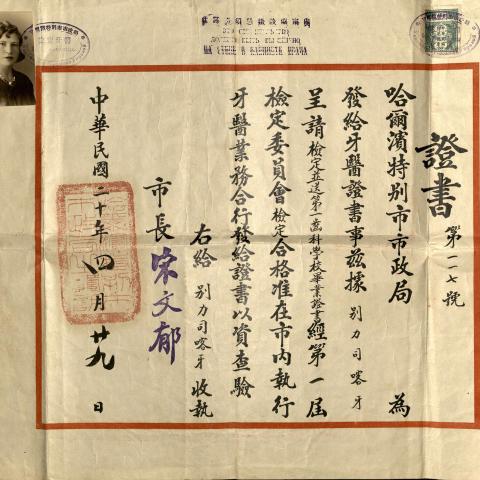 證書
第一一七號
哈爾濱特別市市政局 為
發給牙醫證書事茲據 別力司喀牙
呈請檢定並送第一齒科學校畢業證書經第一屆
檢定委員會檢定合格准在市內執行
牙醫業務合行發給證書以資查驗
右給 別力司喀牙 收執
市長宋文郁
中華民國二十年四月廿九日